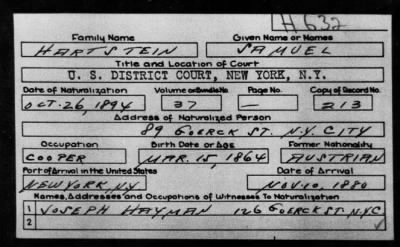 H 632
Family Name Given Name or Names
HARTSTEIN SAMUEL
Title and Location of Court
U. S. DISTRICT COURT, NEW YORK, N.Y.
Date of Naturalization Volume or Bundle No. Page No. Copy of Record No.
OCT. 26, 1894 37 — 213
Address of Naturalized Person
89 GOERCK ST. N.Y. CITY
Occupation Birth Date or Age Former Nationality
COOPER MAR. 15, 1864 AUSTRIAN
Port of Arrival in the United States Date of Arrival
NEW YORK, N.Y. NOV. 10, 1880
Names, Addresses and Occupations of Witnesses To Naturalization
1 JOSEPH HAYMAN 126 GOERCK ST. N.Y.C
2